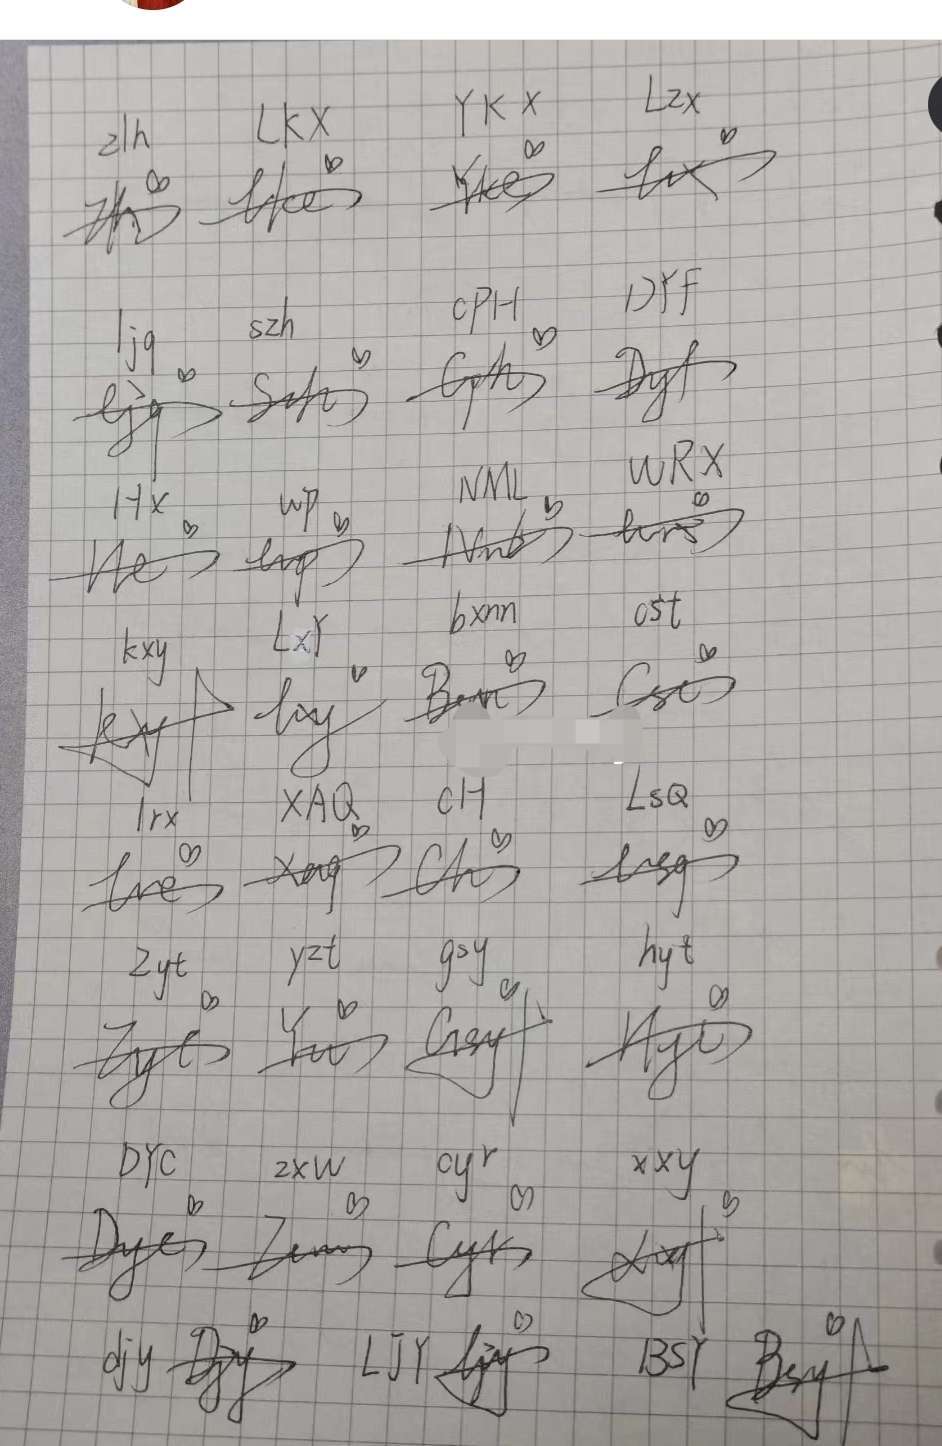 zlh LKX YKX Lzx
Zlh Lke Yke Lx
ljq szh cPH DYF
ljq Szh Cph Dyf
Hx wp NML WRX
He wp Nmb wrs
kxy LxY bxnn cst
kxy lxy Bxn Cst
lrx XAQ cH LSQ
lre Xaq Ch Lsq
Zyt yzt gsy hyt
Zyt Yzt Gsy Hyt
DYC zxw cyr xxy
Dyc Zxw Cyr Xxy
djy Djy LJY Ljy BSY Bsy